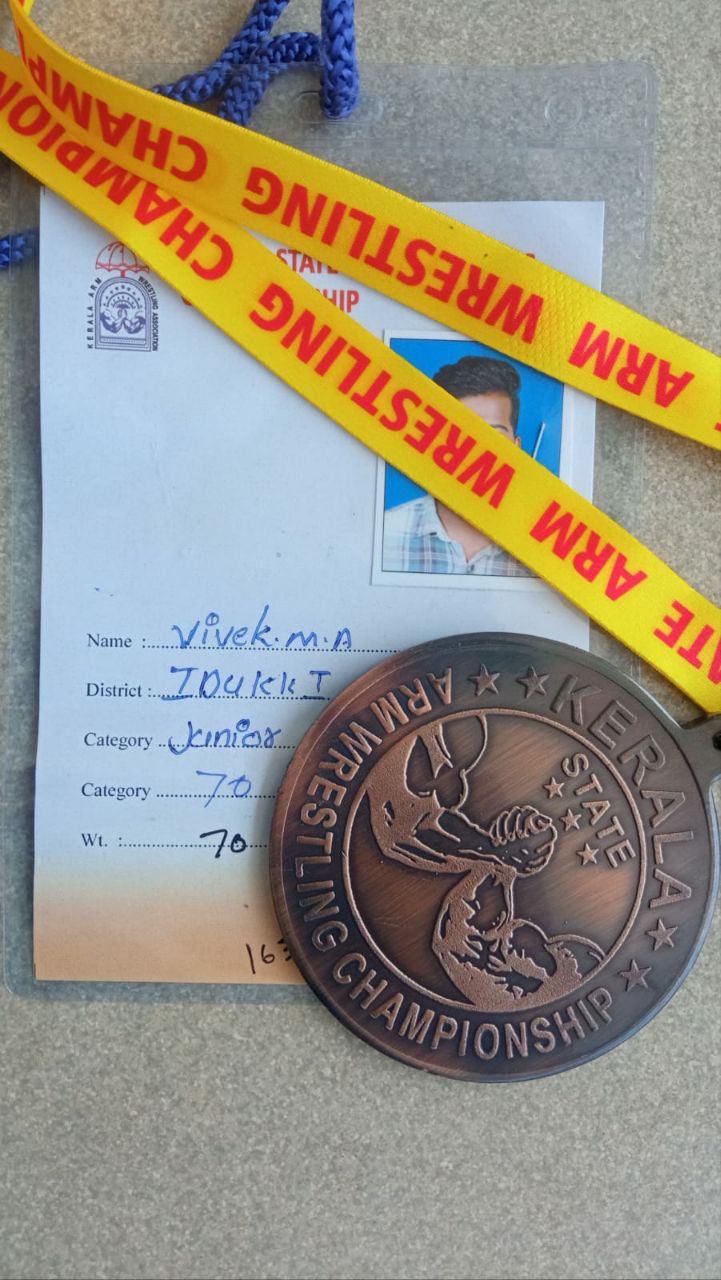 CHAMPION ARM WRESTLING CHAMP
CHAMPION ARM WRESTLING STATE
KERALA ARM WRESTLING ASSOCIATION
STATE
SHIP
Name : Vivek.M.A
District : IDukkI
Category Junior
Category 70
Wt. : 70
16
KERALA
STATE
ARM WRESTLING CHAMPIONSHIP